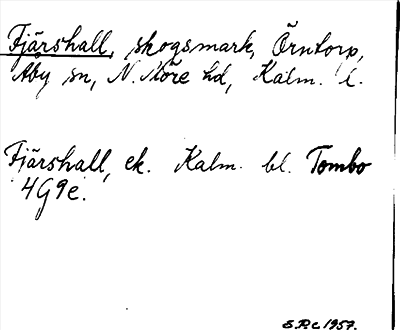 Fjärshall, skogsmark, Örntorp,
Åby sn, N. Möre hd, Kalm. l.
Fjärshall, ek. Kalm. bl. Tombo
4G9e.
1957.